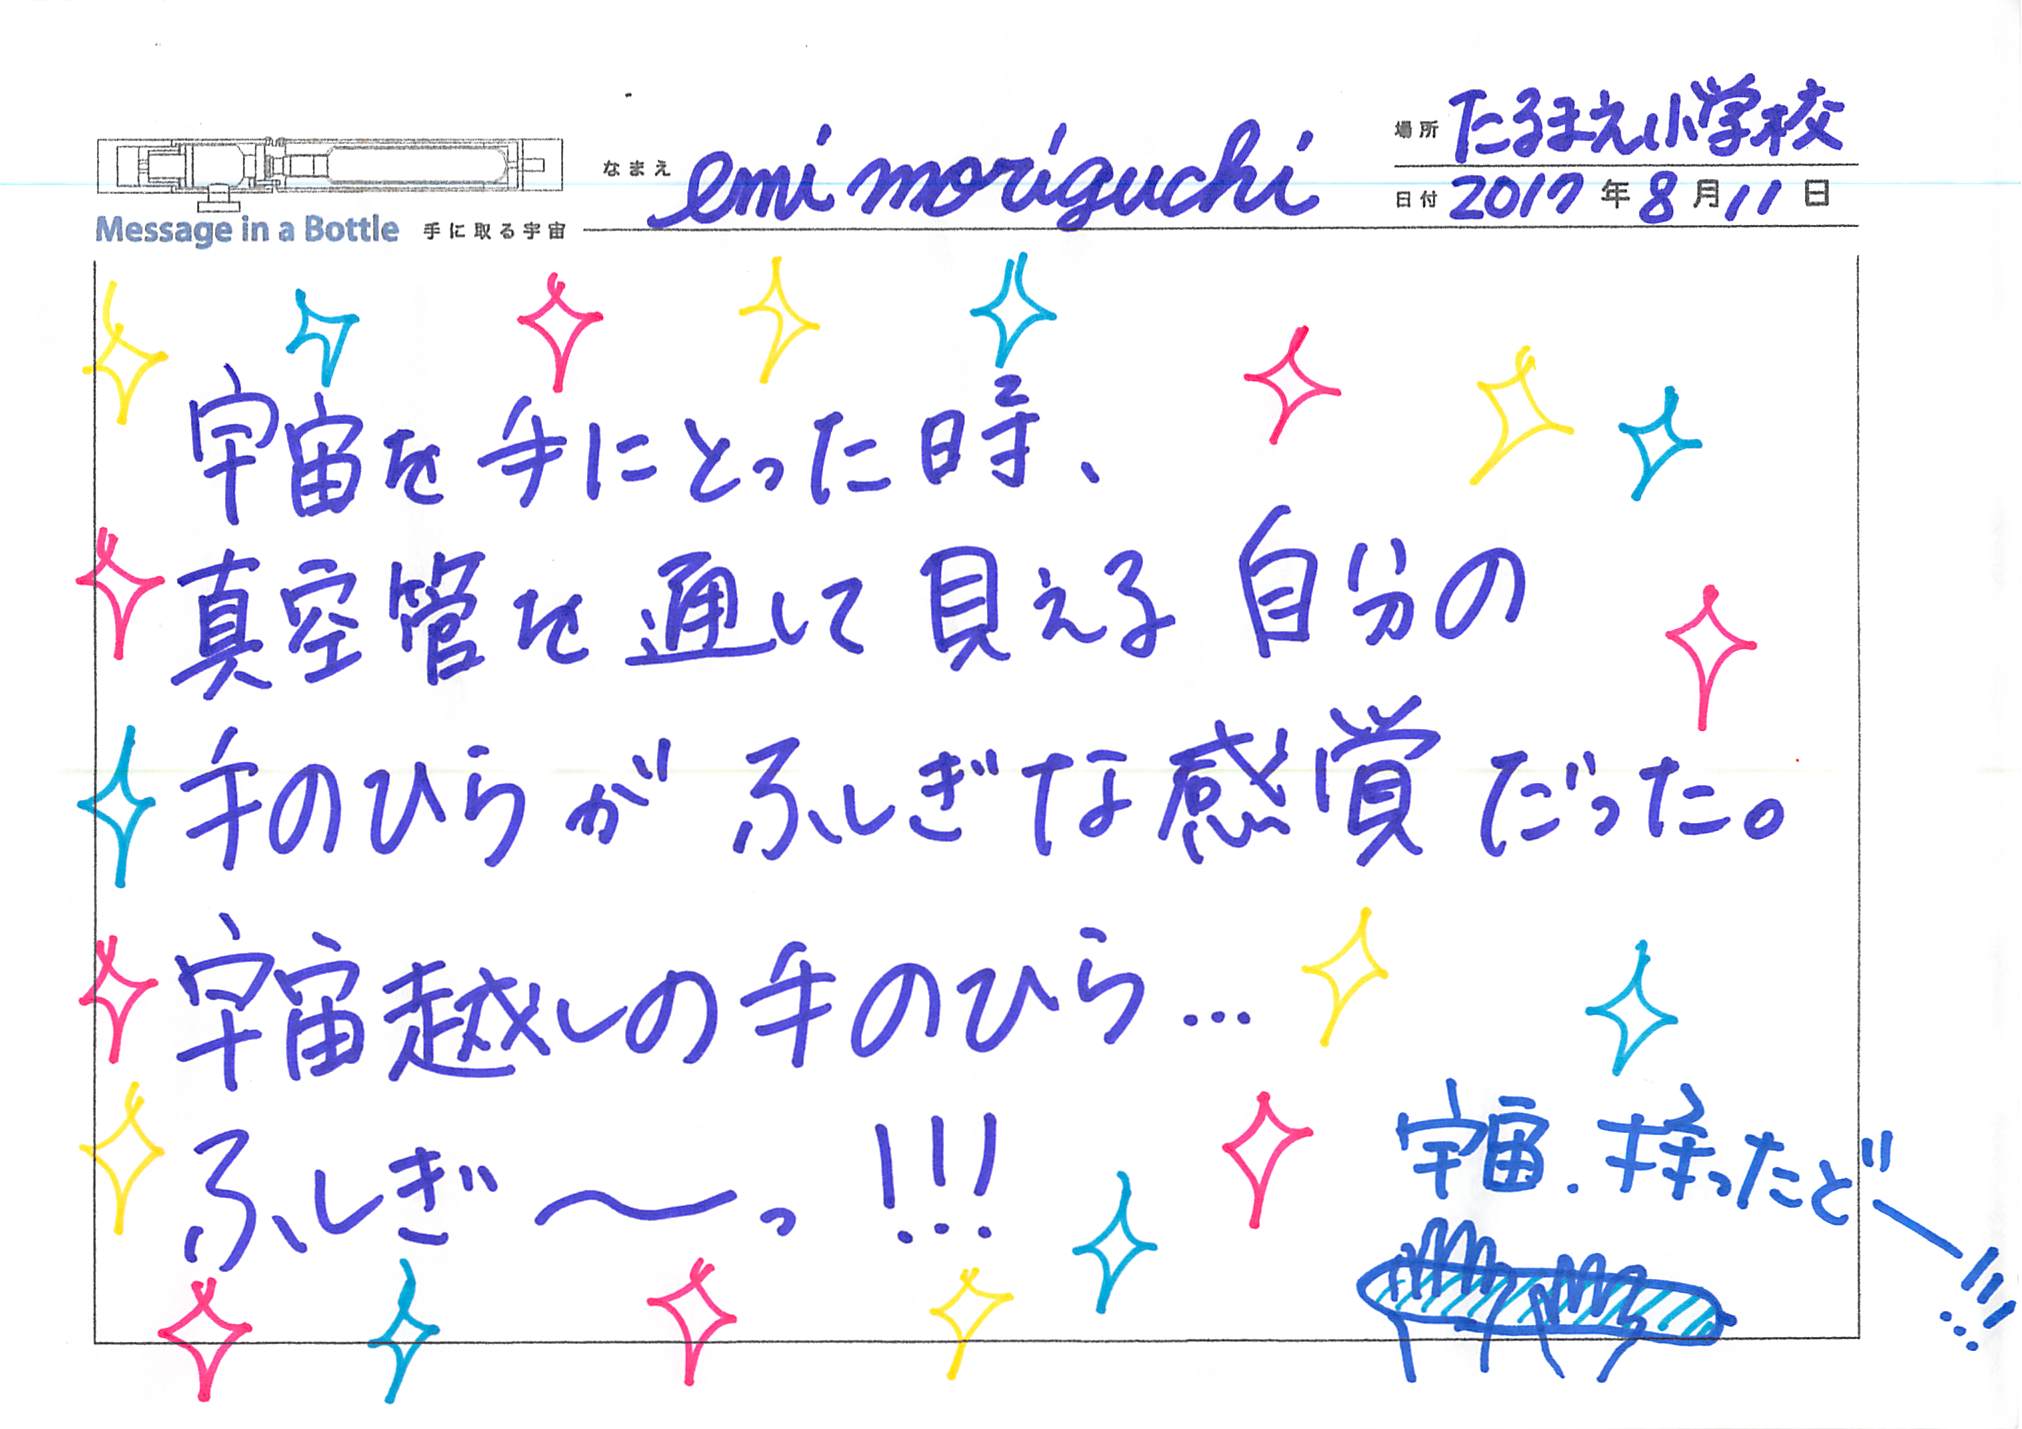 Message in a Bottle 手に取る宇宙
なまえ emi moriguchi
場所 たるまえ小学校
日付 2017年8月11日
宇宙を手にとった時、
真空管を通して見える自分の
手のひらがふしぎな感覚だった。
宇宙越しの手のひら…
ふしぎ〜っ!!!
宇宙.持ったどー!!!